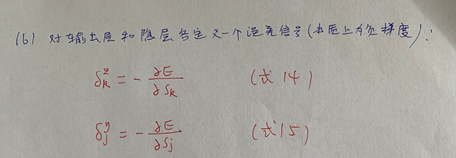 (6) 对输出层和隐层各定义一个误差信号(本质上为负梯度):
δₖᶻ = - ∂E/∂Sₖ (式14)
δⱼʸ = - ∂E/∂Sⱼ (式15)